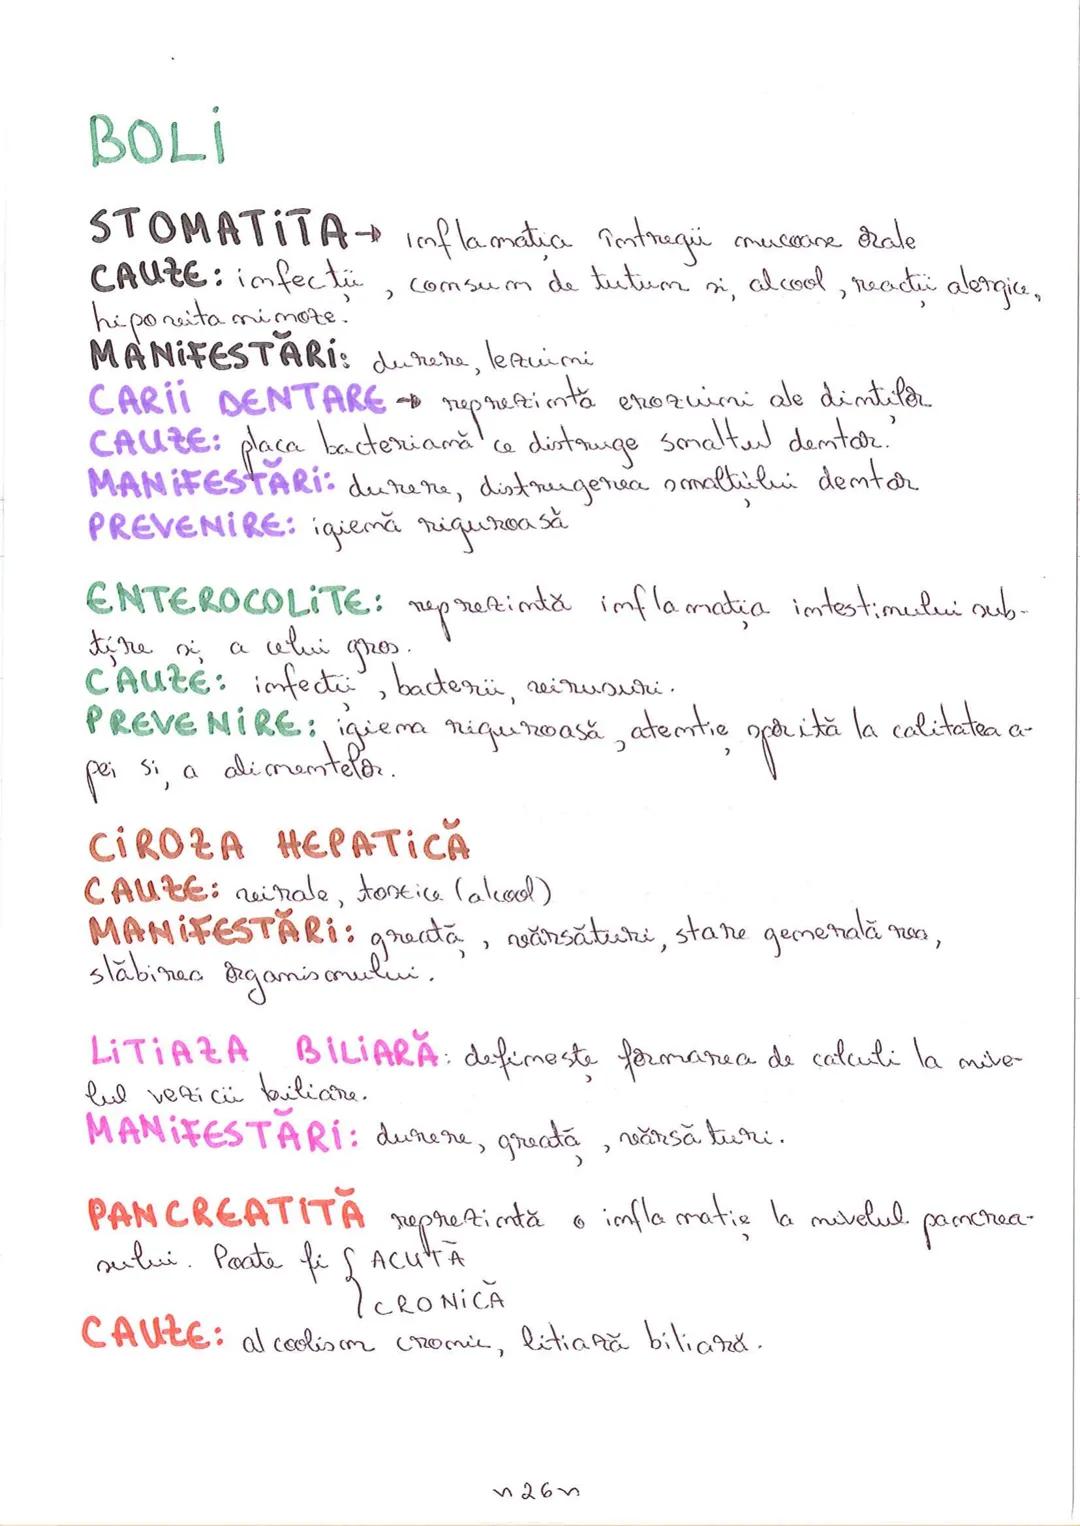 BOLI
STOMATITA → inflamația întregii mucoase orale
CAUZE: infecții, consum de tutum și alcool, reacții alergice,
hipovitaminoze.
MANIFESTĂRI: durere, leziuni
CARII DENTARE → reprezintă eroziuni ale dintilor
CAUZE: placa bacteriană ce distruge smaltul dentar.
MANIFESTĂRI: durere, distrugerea smalțului dentar
PREVENIRE: igienă riguroasă
ENTEROCOLITE: reprezintă inflamația intestinului sub-
țire și a celui gros.
CAUZE: infecții, bacterii, virusuri.
PREVENIRE: igiena riguroasă, atenție sporită la calitatea a-
pei și a alimentelor.
CIROZA HEPATICĂ
CAUZE: virale, toxice (alcool)
MANIFESTĂRI: greață, vărsături, stare generală rea,
slăbirea organismului.
LITIAZA BILIARĂ: definește formarea de calculi la nive-
lul vezicii biliare.
MANIFESTĂRI: durere, greață, vărsături.
PANCREATITĂ reprezintă o inflamație la nivelul pancrea-
sului. Poate fi { ACUTĂ
CRONICĂ
CAUZE: alcoolism cronic, litiază biliară.
~26~